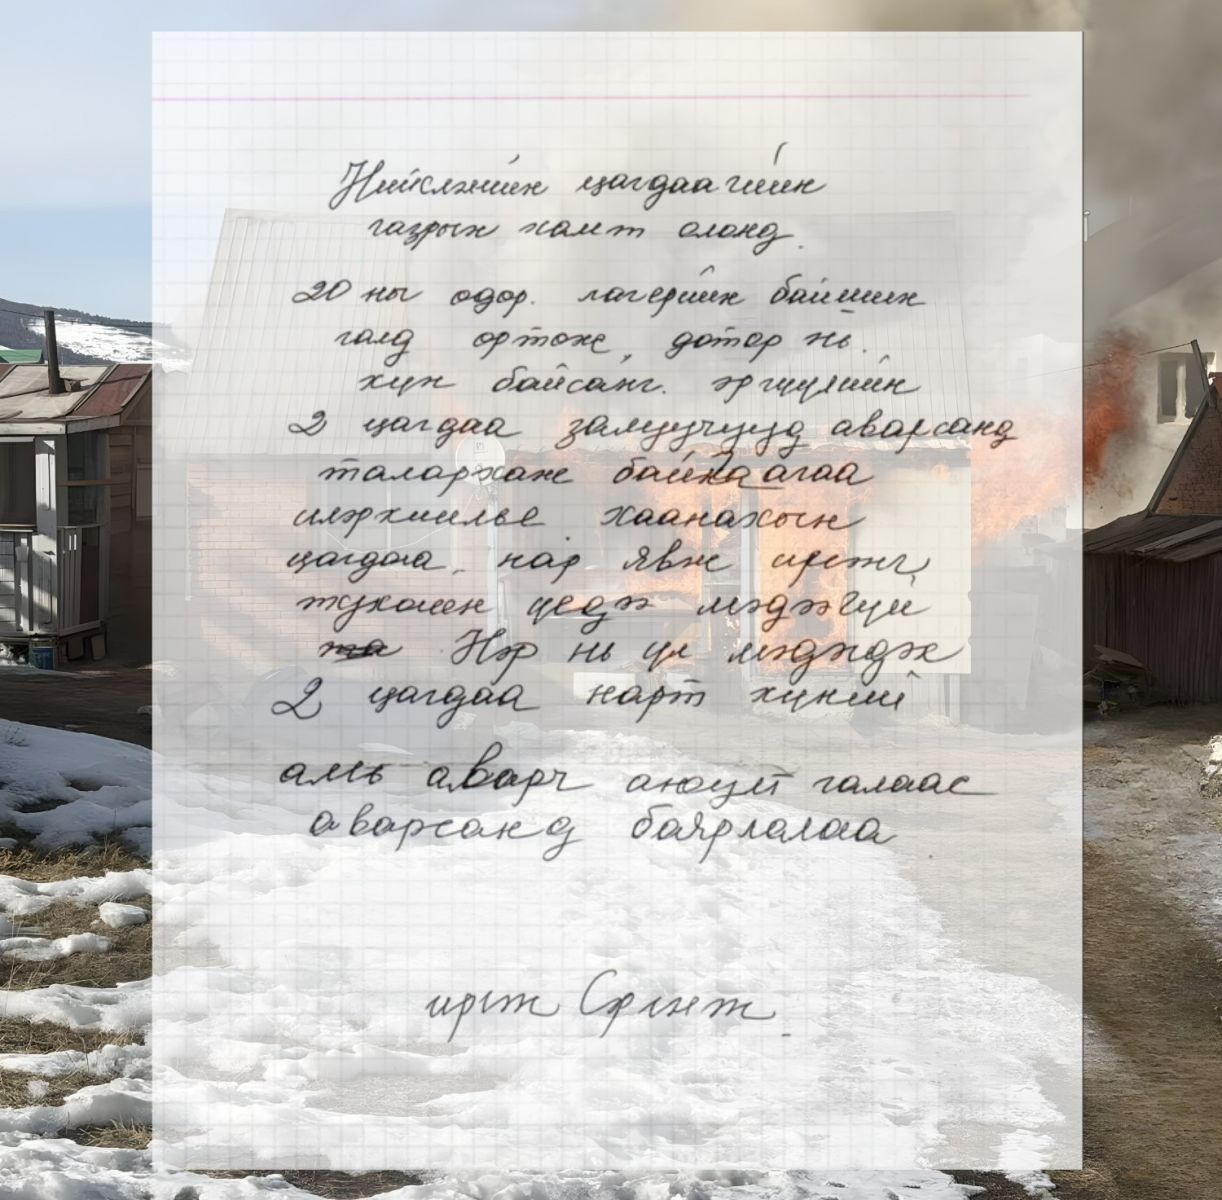 Нийслэлийн цагдаагийн
газрын хамт олонд.
20 ны одор. лагерийн байшин
галд ортож, дотор нь
хүн байсанг. эргүүлийн
2 цагдаа залуучууд аварсанд
талархаж байнаагаа
илэрхиилье хаанахын
цагдаа нар явж
үедээ мэдэхгүи
Нэр нь үл мэдэгдэх
2 цагдаа нарт хүний
амь аварч аюулт галаас
аварсанд баярлалаа
иргэн